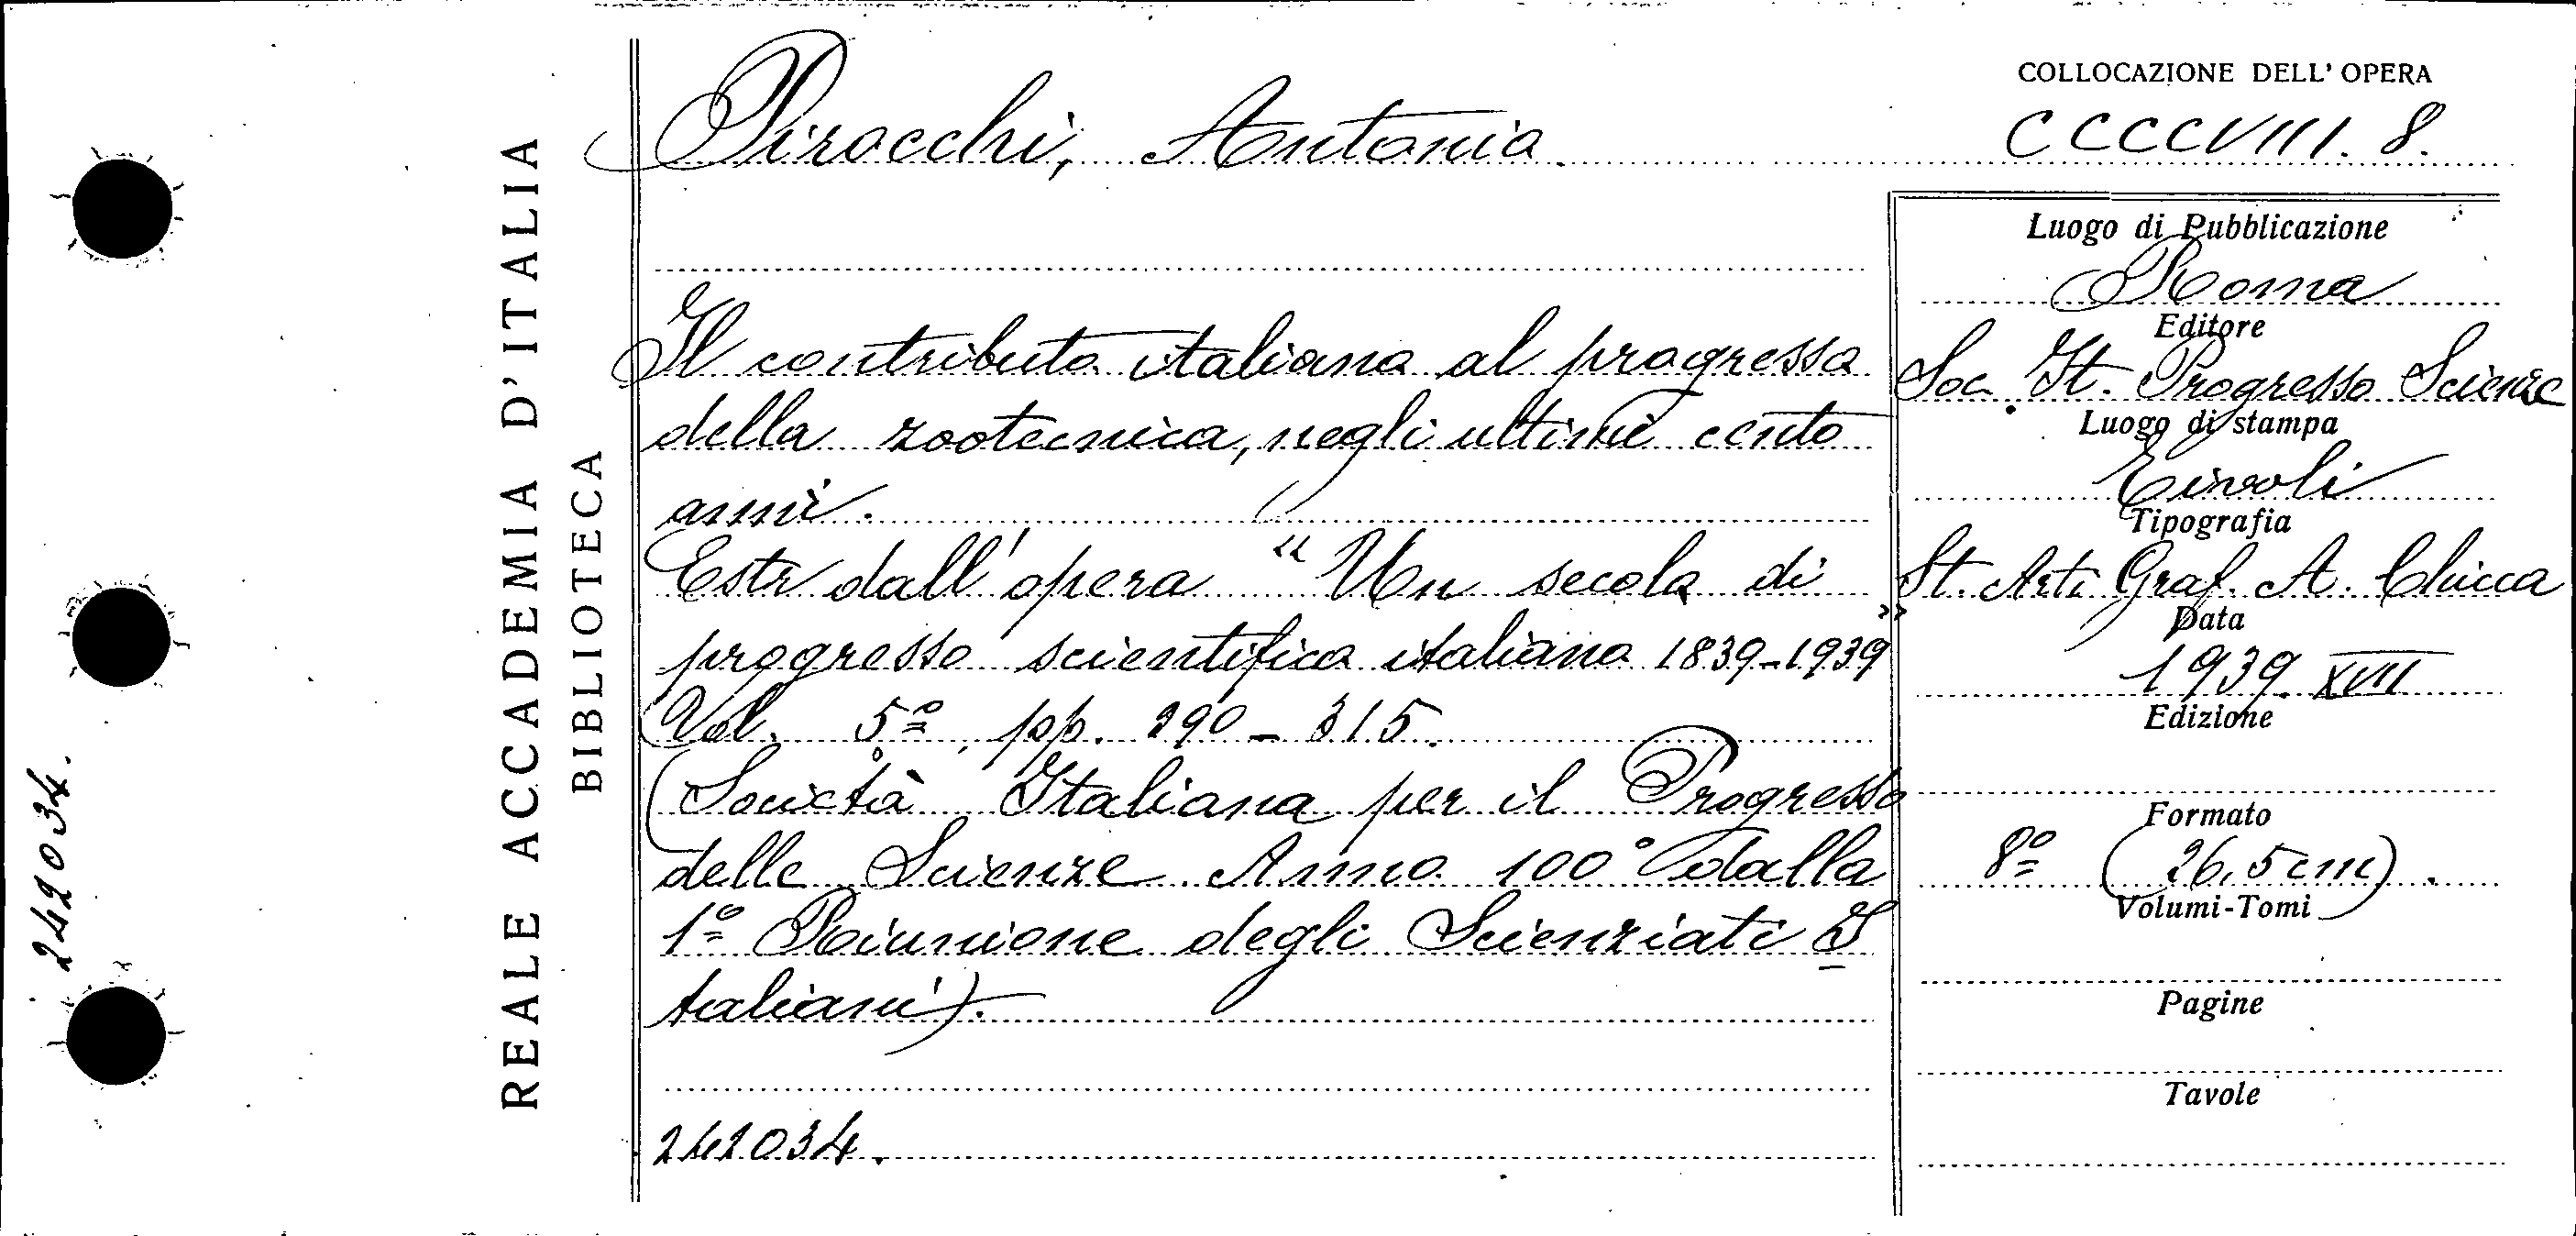 COLLOCAZIONE DELL' OPERA
Pirocchi, Antonio.
CCCCVIII. 8.
Il contributo italiano al progresso
della zootecnica, negli ultimi cento
anni.
Estr dall'opera "Un secolo di
progresso scientifico italiano 1839-1939"
Vol. 5º, pp. 290-315.
(Società Italiana per il Progresso
delle Scienze Anno 100° dalla
1º Riunione degli Scienziati I
taliani).
242034.
Luogo di Pubblicazione
Roma
Editore
Soc. It. Progresso Scienze
Luogo di stampa
Tivoli
Tipografia
St. Arti Graf. A. Chicca
Data
1939 XVII
Edizione
Formato
8º (26,5 cm).
Volumi-Tomi
Pagine
Tavole
REALE ACCADEMIA D'ITALIA
BIBLIOTECA
242034.